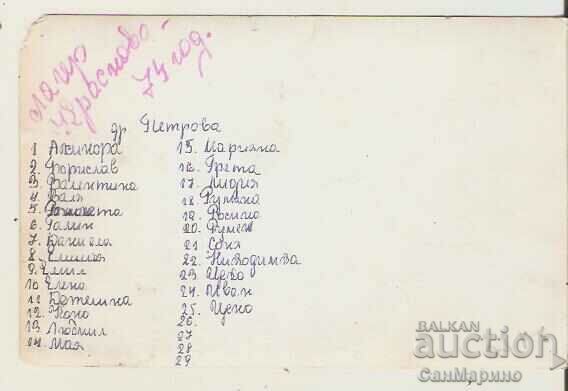 лагер
"Красново" -
74 год.
др Петрова
1 Аминора
2. Борислав
3. Валентина
4. Валя
5.
6. Галин
7. Даниела
8.
9. Емил
10 Елена
11
12. Коно
13. Людмил
14. Мая
15. Марияна
16. Грета
17. Лидия
18. Румяна
19. Росица
20. Румен
21 Соня
22. Никодимка
23 Цеко
24. Иван
25. Цено
26.
27
28
29
BALKAN
auction
СанМарино